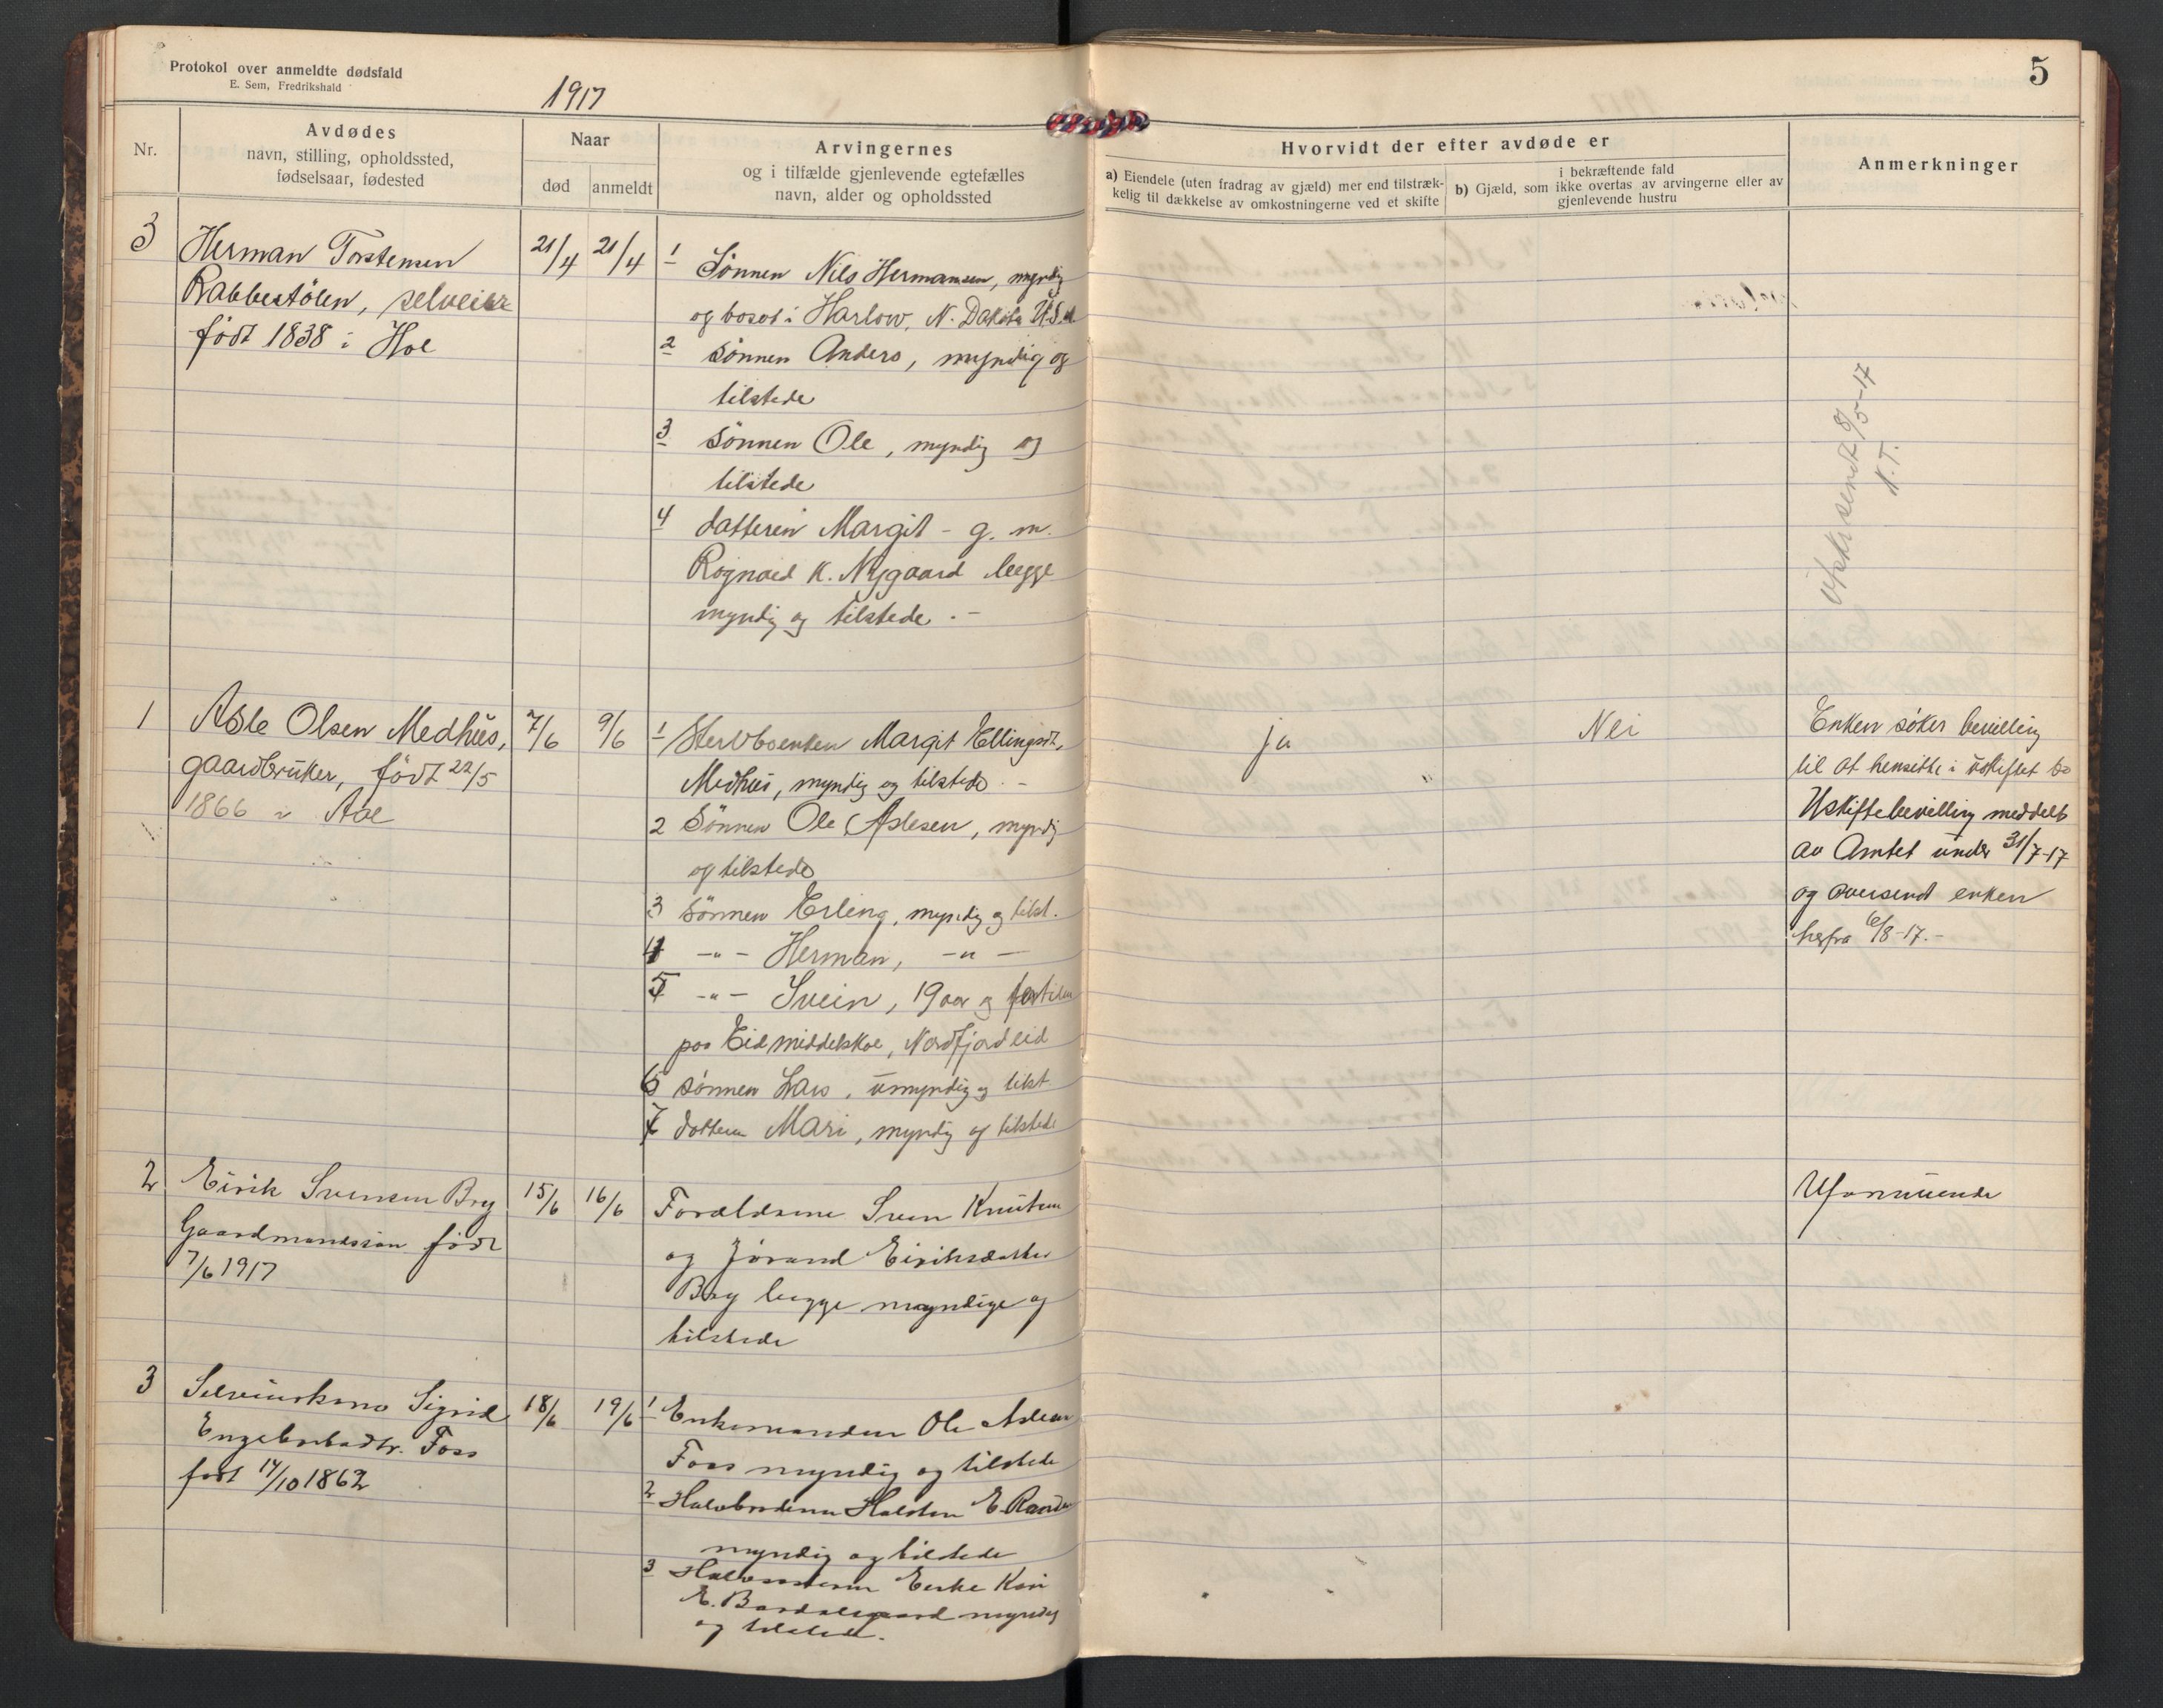 Protokol over anmeldte dødsfald
E. Sem, Fredrikshald
1917
5
Nr.
Avdødes
navn, stilling, opholdssted,
fødselsaar, fødested
Naar
død
anmeldt
Arvingernes
og i tilfælde gjenlevende egtefælles
navn, alder og opholdssted
Hvorvidt der efter avdøde er
a) Eiendele (uten fradrag av gjæld) mer end tilstræk-
kelig til dækkelse av omkostningerne ved et skifte
i bekræftende fald
b) Gjæld, som ikke overtas av arvingerne eller av
gjenlevende hustru
Anmerkninger
3
Herman Torstensen
Rabbestölen, selveier
født 1838 i Hol
21/4
21/4
1 Sønnen Nils Hermansen, myndig
og bosat i Harlow, N. Dakota U.S.A
2 Sønnen Anders, myndig og
tilstede
3 Sønnen Ole, myndig og
tilstede
4 datteren Margit - g. m.
Rognald K. Nygaard begge
myndig og tilstede. -
8/5-17
K.T.
1
Asle Olsen Medhus,
gaardbruker, født 22/5
1866 i Aal
7/6
9/6
1 Stervboenken Margit Ellingsdt.
Medhus, myndig og tilstede. -
2 Sønnen Ole Aslesen, myndig
og tilstede
3 Sønnen Erling, myndig og tilst.
4 -"- Herman, -"-
5 -"- Svein, 19 aar og
paa Eid middelskole, Nordfjordeid
6 sønnen Lars, umyndig og tilst.
7 datteren Mari, myndig og tilstede
ja
Nei
Enken søker bevilling
til at hensitte i uskiftet bo
Uskiftebevilling meddelt
av Amtet under 31/7-17
og oversendt enken
herfra 6/8-17.-
2
Eirik Svensen Bry
Gaardmandssøn født
7/6 1917
15/6
16/6
Forældrene Sven Knutsen
og Jørand Eiriksdatter
Bry begge myndige og
tilstede
Uformuende
3
Selveierkone Sigrid
Engebretsdtr. Foss
født 14/10 1862
18/6
19/6
1 Enkemanden Ole Aslesen
Foss myndig og tilstede
2 Halvbroderen Halsten E.
myndig og tilstede
3 Halvsøsteren Enke Kari
E. Bardalsgaard myndig
og tilstede.